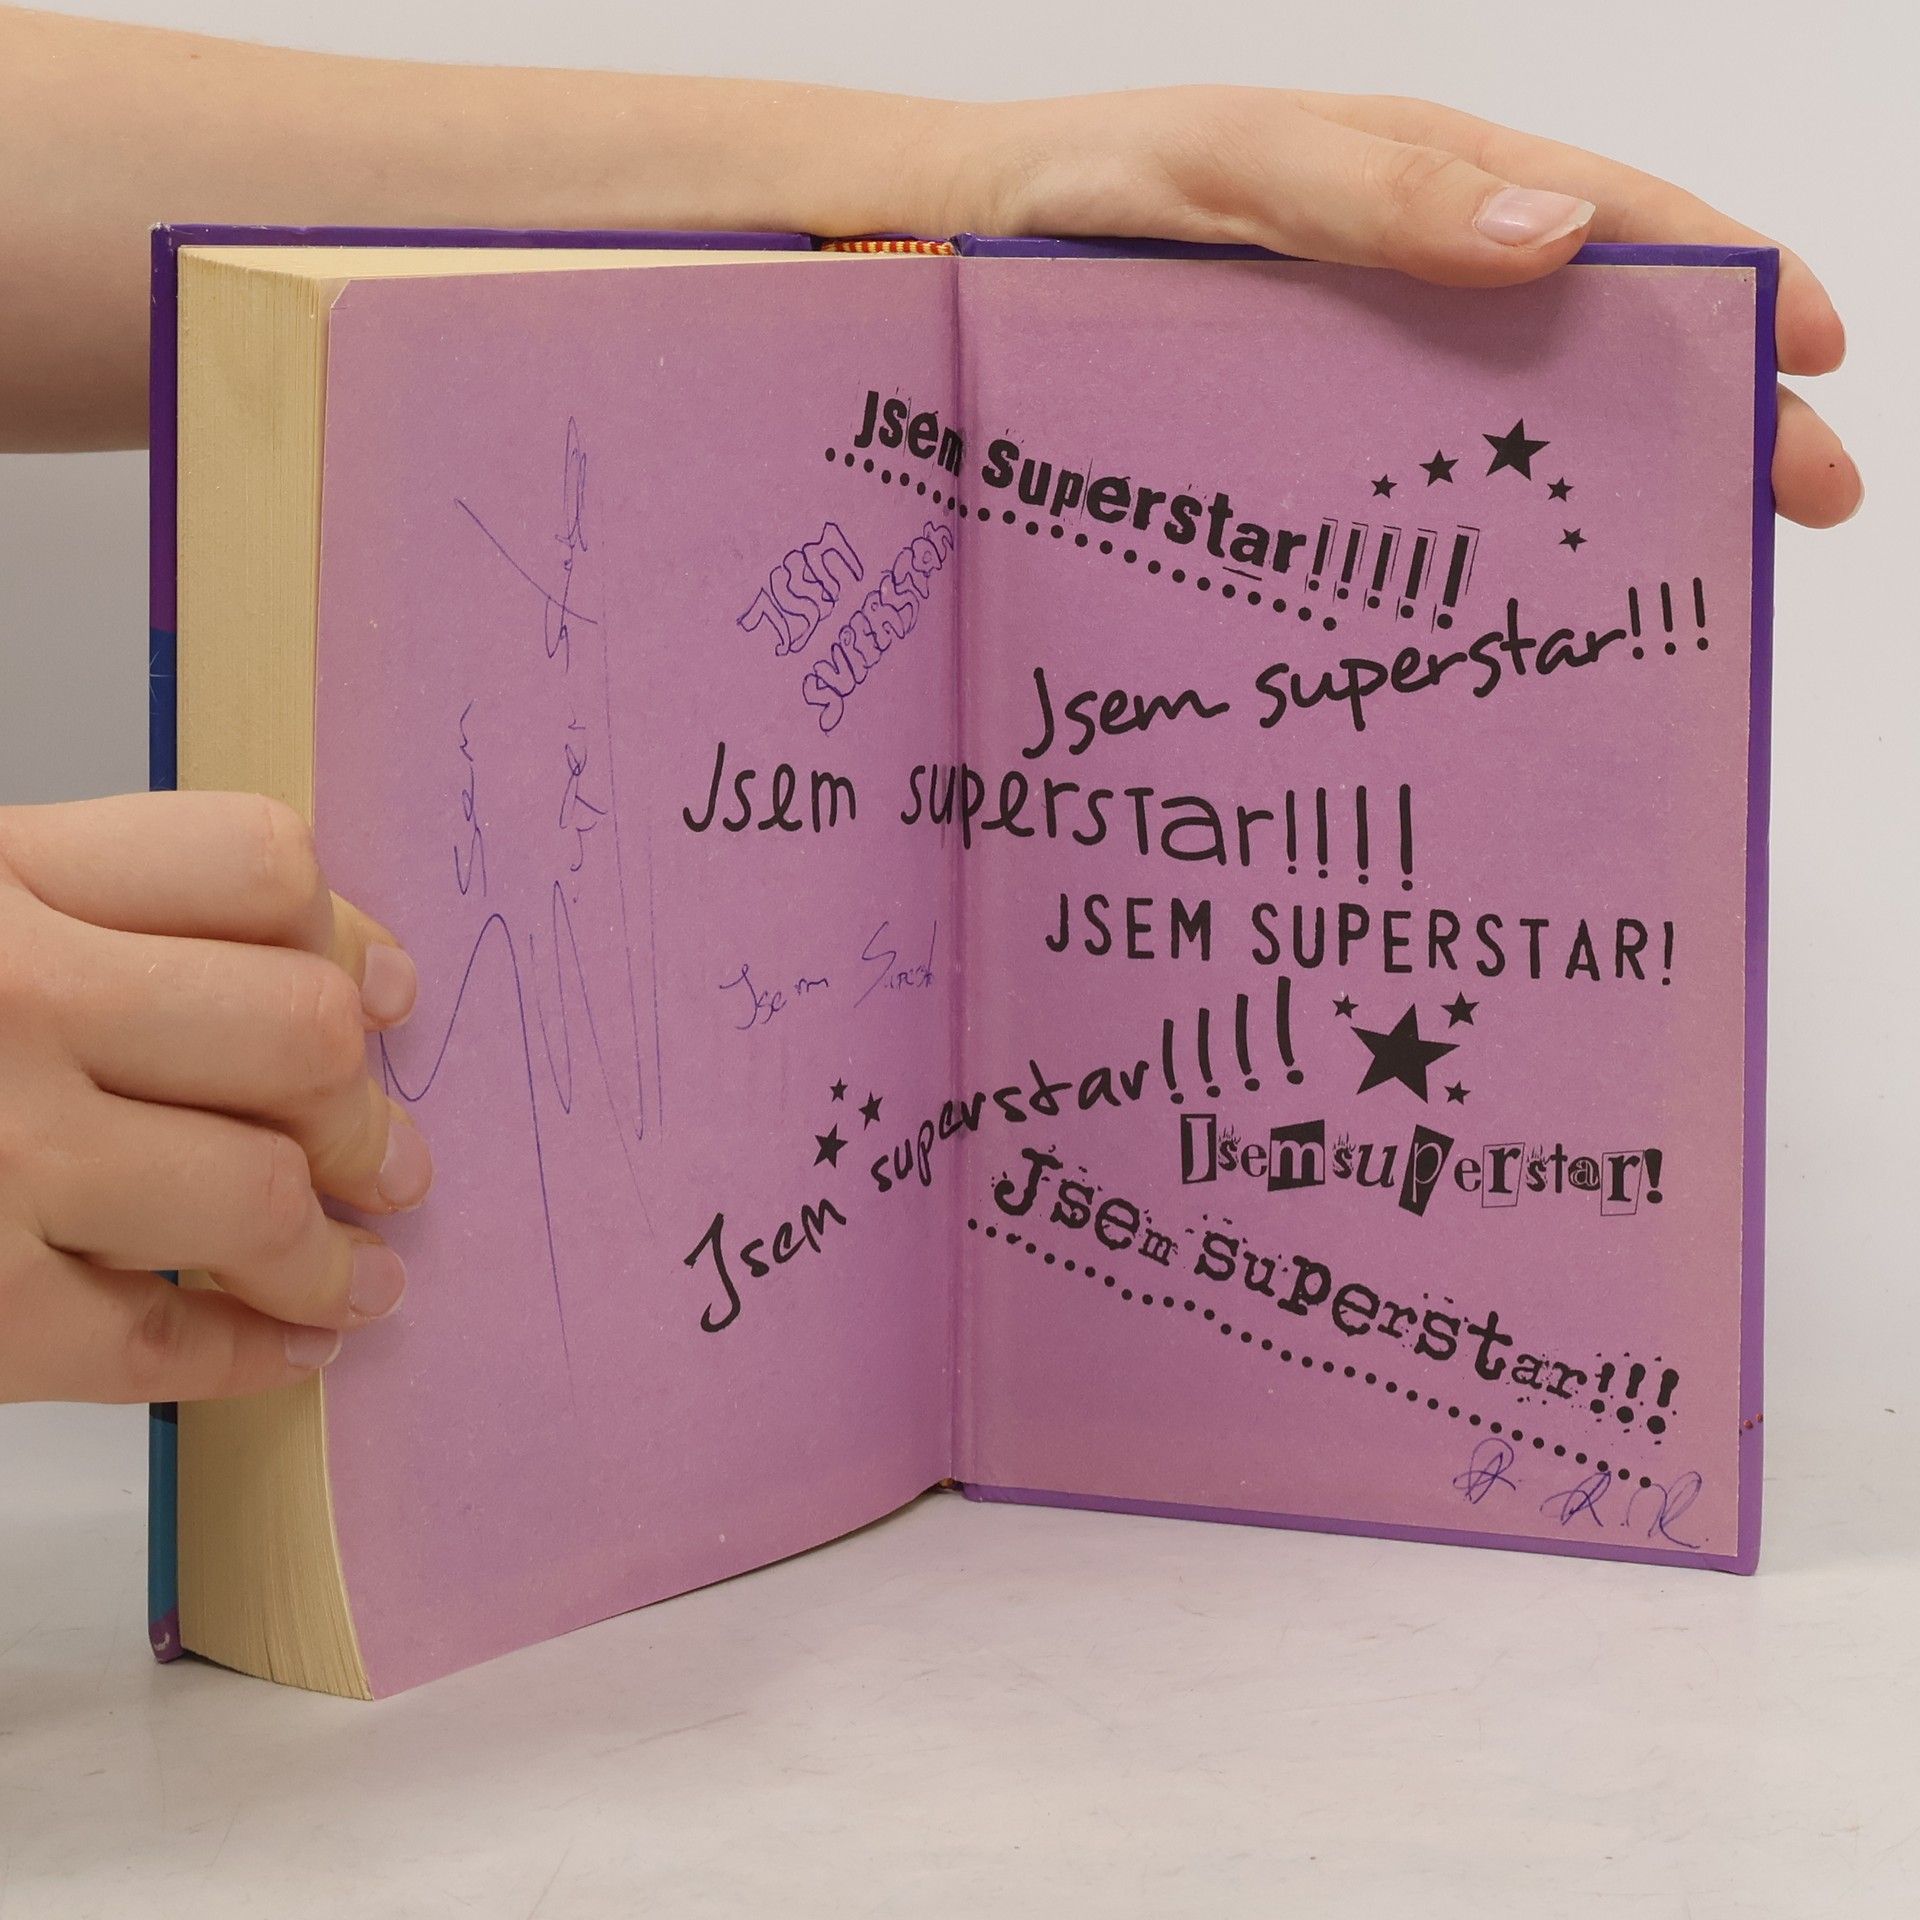 Jsem superstar!!!!!
Jsem superstar!!!
JSEM
SUPERSTAR
Jsem superstar!!!!
JSEM SUPERSTAR!
Jsem
Jsem
Jsem superstar!!!!
Jsem superstar!
Jsem superstar!!!